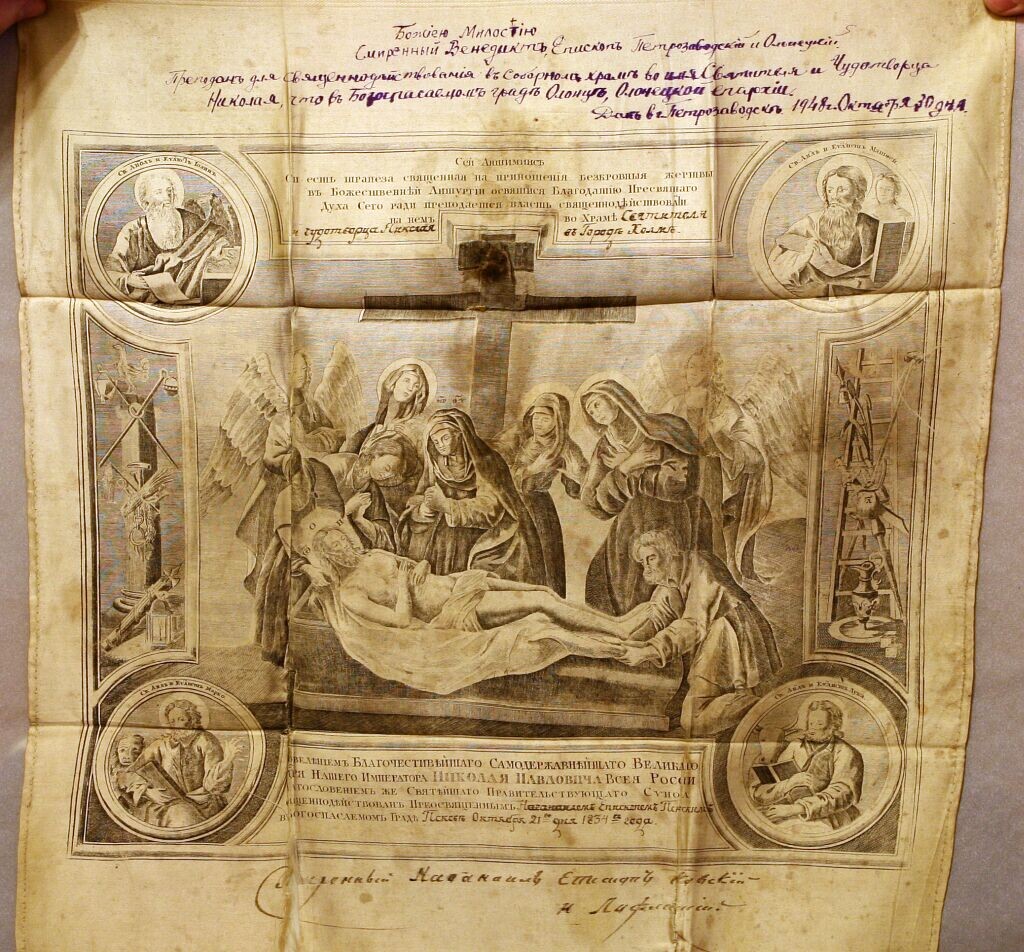 Божіею Милостію
Смиренный Венедиктъ Епископъ Петрозаводскій и Олонецкій
Преподанъ для священнодѣйствованія въ соборномъ храмѣ во имя Святителя и Чудотворца
Николая, что въ Богоспасаемомъ градѣ Олонцѣ, Олонецкой епархіи.
Данъ въ г. Петрозаводскѣ 1948 г. Октября 30 дня
Св. Аплъ и Еѵлистъ Іоаннъ
Св. Аплъ и Еѵлистъ Матѳей
Сей Антиминсъ
Си есть трапеза священная на приношенія безкровныя жертвы
въ Божественнѣй Литургіи освятися Благодатію Пресвятаго
Духа Сего ради преподается власть священнодѣйствовати
на немъ во Храмѣ Святителя
и чудотворца Николая въ Городѣ Холмѣ.
Св. Аплъ и Еѵлистъ Марко
Св. Аплъ и Еѵлистъ Лука
Повелѣніемъ Благочестивѣйшаго Самодержавнѣйшаго Великаго
Нашего Императора НИКОЛАЯ ПАВЛОВИЧА Всея Россіи
гословеніемъ же Святѣйшаго Правительствующаго Сѵнода
щеннодѣйствованъ Преосвященнымъ Наѳанаиломъ Епископомъ Псковскимъ
въ богоспасаемомъ Градѣ Псковѣ Октября 21го дня 1834го года.
Смиренный Наѳанаилъ Епископъ Псковскій
и Лифляндскій